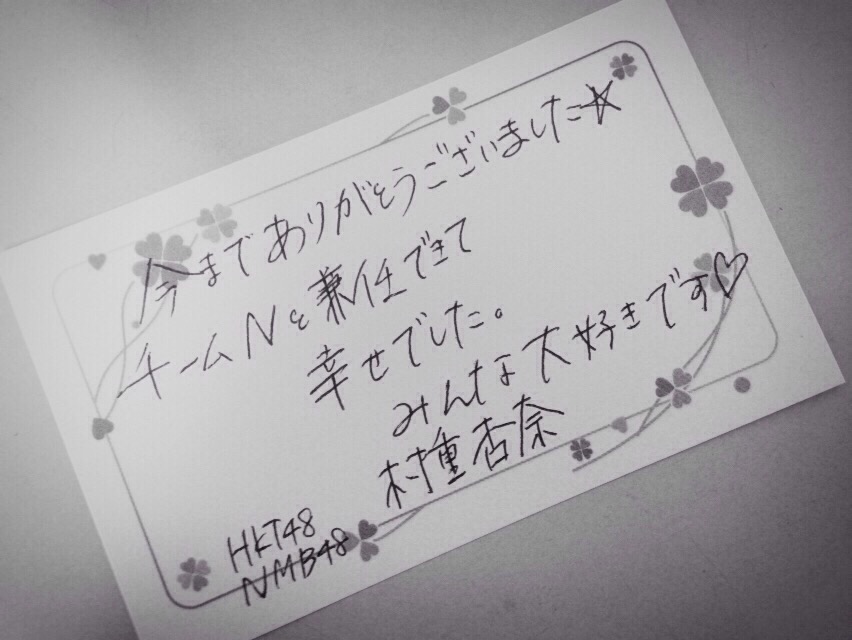 今までありがとうございました☆
チームNと兼任できて
幸せでした。
みんな大好きです♡
村重杏奈
HKT48
NMB48